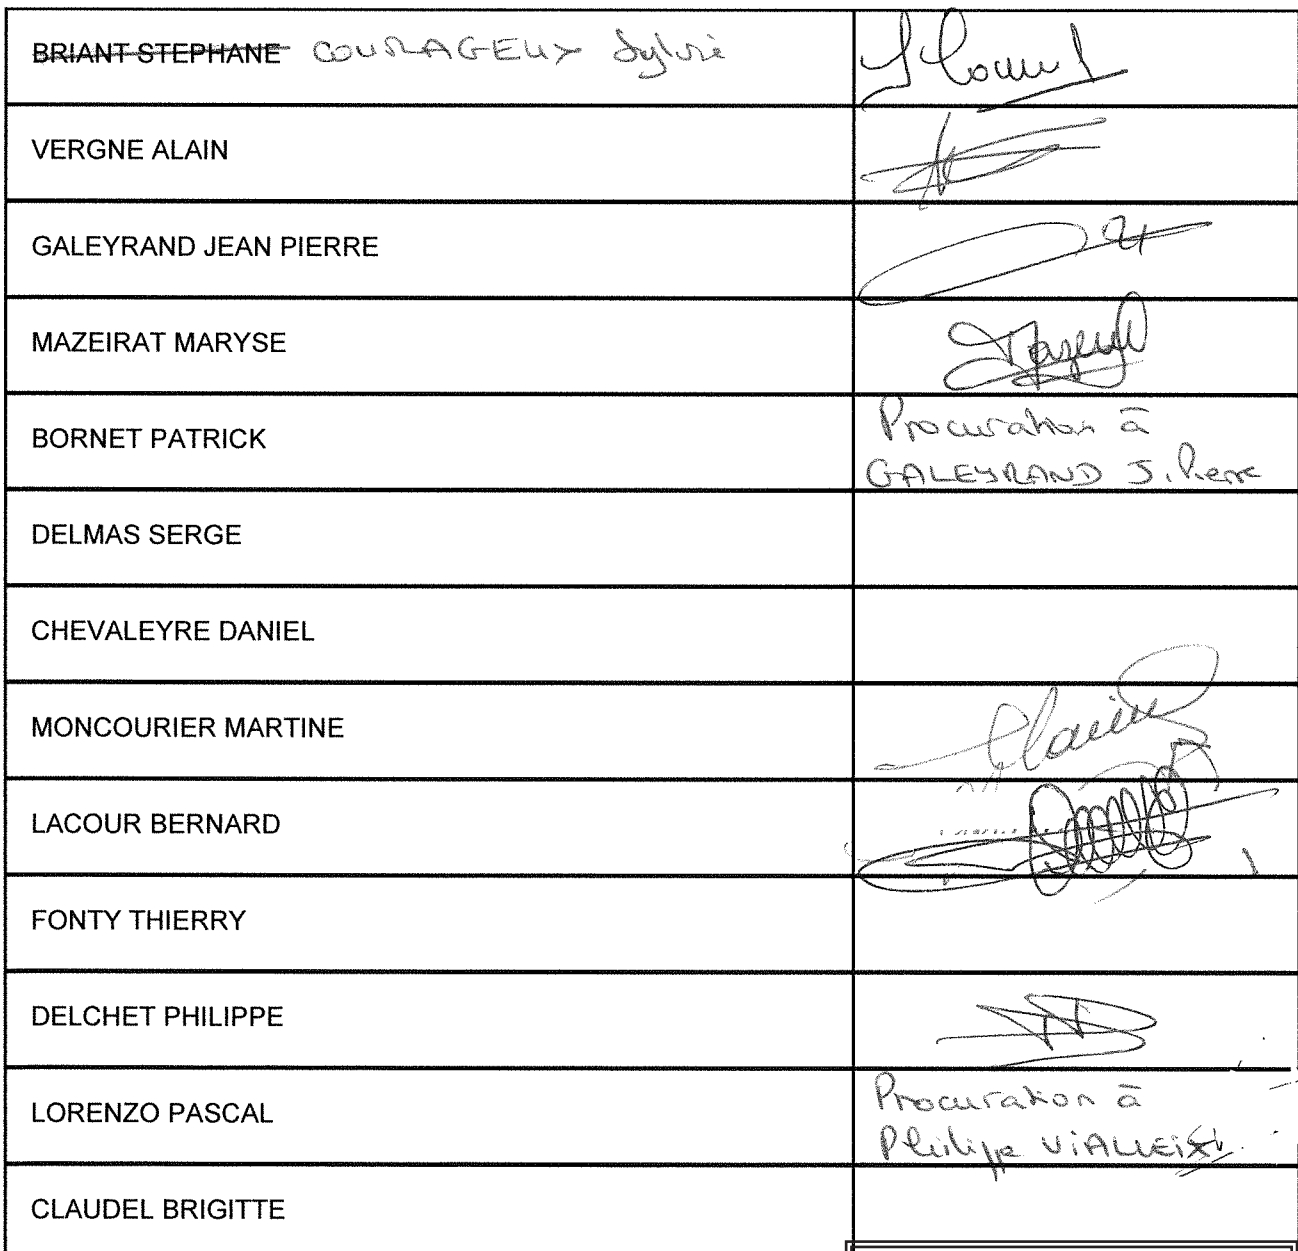 BRIANT STEPHANE COURAGEUX Sylvie
VERGNE ALAIN
GALEYRAND JEAN PIERRE
MAZEIRAT MARYSE
BORNET PATRICK
Procuration à
GALEYRAND J. Pierre
DELMAS SERGE
CHEVALEYRE DANIEL
MONCOURIER MARTINE
LACOUR BERNARD
FONTY THIERRY
DELCHET PHILIPPE
LORENZO PASCAL
Procuration à
Philippe VIALLEIX
CLAUDEL BRIGITTE